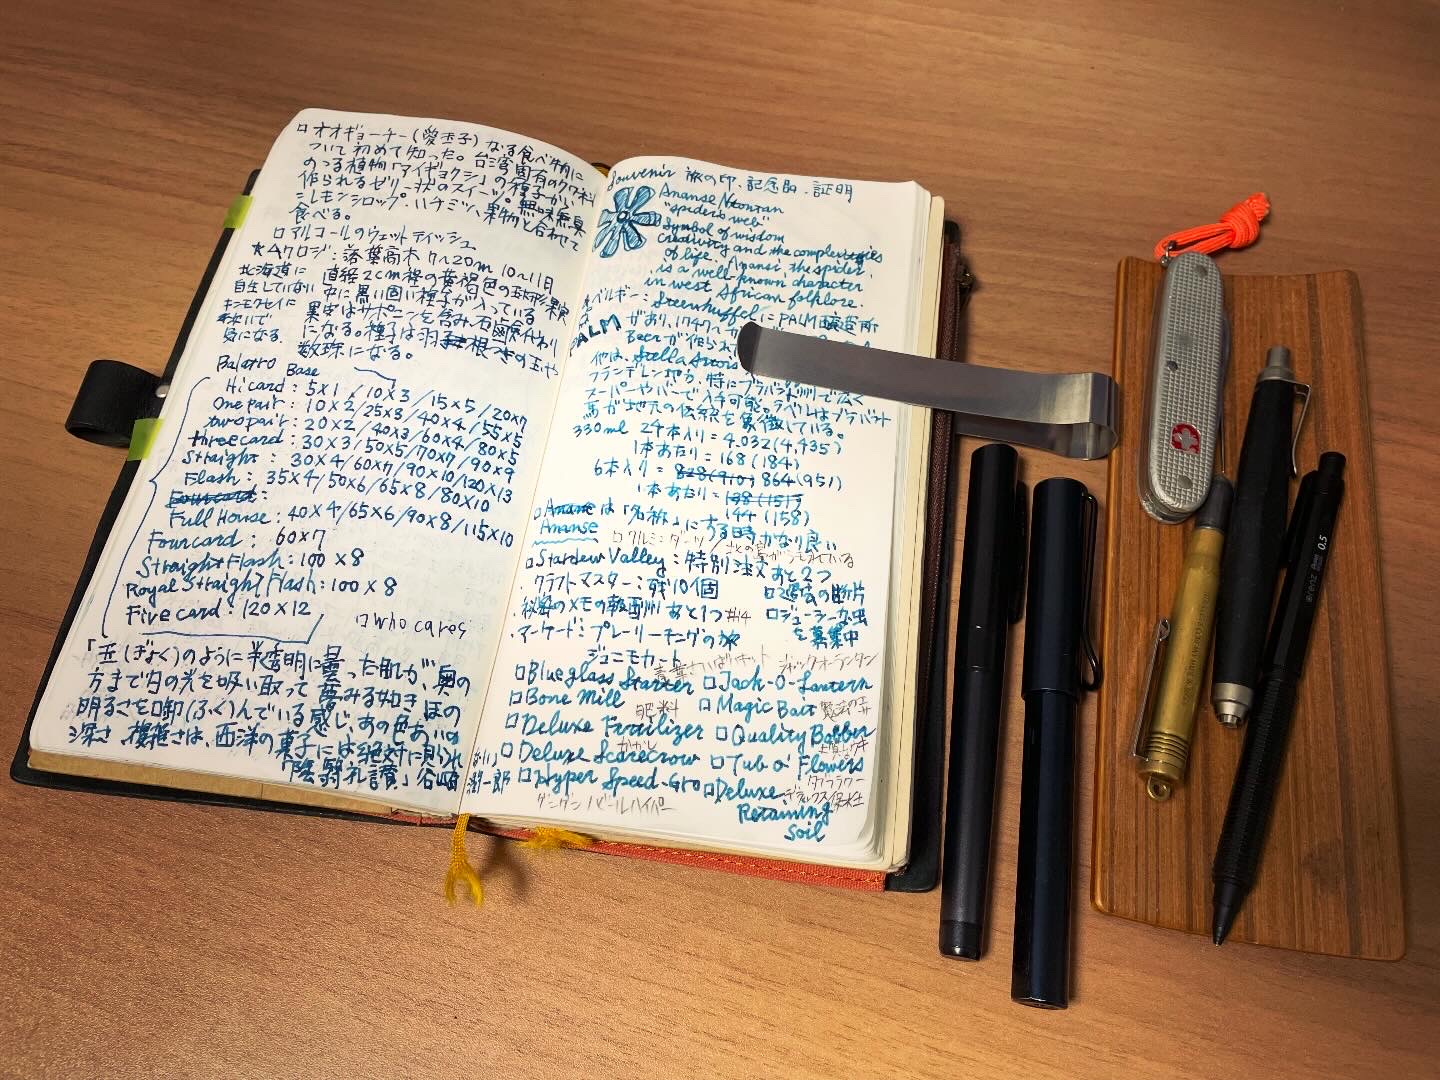 □オオギョーチー(愛玉子)なる食べ物に
ついて初めて知った。台湾固有のクワ科
のつる植物「アイギョクシ」の種子から
作られるゼリー状のスイーツ。無味無臭
レモンシロップ、ハチミツ、果物と合わせて
食べる。
□アルコールのウェットティッシュ
ムクロジ:落葉高木 7〜20m 10〜11月
北海道に
自生していない
キンモクセイに
次いで
気になる.
直径2cm程の黄褐色の球形果実
中に黒い固い種子が入っている
果皮はサポニンを含み、石鹸代わり
になる。種子は羽根つきの玉や
数珠になる。
Balatro Base
Hi card : 5×1 / 10×3 / 15×5 / 20×7
One pair : 10×2 / 25×3 / 40×4 / 55×5
two pair : 20×2 / 40×3 / 60×4 / 80×5
three card : 30×3 / 50×5 / 70×7 / 90×9
Straight : 30×4 / 60×7 / 90×10 / 120×13
Flash : 35×4 / 50×6 / 65×8 / 80×10
Fourcard :
Full House : 40×4 / 65×6 / 90×8 / 115×10
Four card : 60×7
Straight Flash : 100×8
Royal Straight Flash : 100×8
Five card : 120×12
□who cares
「玉(ぎょく)のように半透明に曇った肌が、奥の
方まで日の光を吸い取って夢みる如きほの
明るさを啣(ふく)んでいる感じ、あの色あいの
深さ、複雑さは、西洋の菓子には絶対に見られ
「陰翳礼讃」谷崎
潤一郎
Souvenir 旅の印、記念品、証明
Ananse Ntontan
"spider's web"
Symbol of wisdom
creativity and the complexities
of life. Anansi, the spider,
is a well-known character
in west African folklore.
ベルギー: SteenhuffelにPALM醸造所
PALM
があり、1747〜
Beerが作られ
他は、Stella Artois
フランデレン地方、特にブラバント州で広く
スーパーやバーで入手可能。ラベルはブラバント
馬が地元の伝統を象徴している。
330ml 24本入り = 4.032(4,435)
1本あたり = 168(184)
6本入り = 828(910) 864(951)
1本あたり = 138(151)
144(158)
□Ananeは「名称」にする時かなり良い
Ananse
□Stardew Valley:特別注文あと2つ
クラフトマスター:残10個
秘密のメモの報酬あと1つ #14
マーケード:プレーリーキングの
ジュニモカート
を募集中
□Blueglass Starter
□Jack-O-Lantern
ジャックオーランタン
□Bone Mill
肥料
□Magic Bait
□Deluxe Fertilizer
□Quality Bobber
□Deluxe Scarecrow
かかし
□Tub o' Flowers
タブフラワー
□Hyper Speed-Gro
□Deluxe
Retaining
Soil
0.5